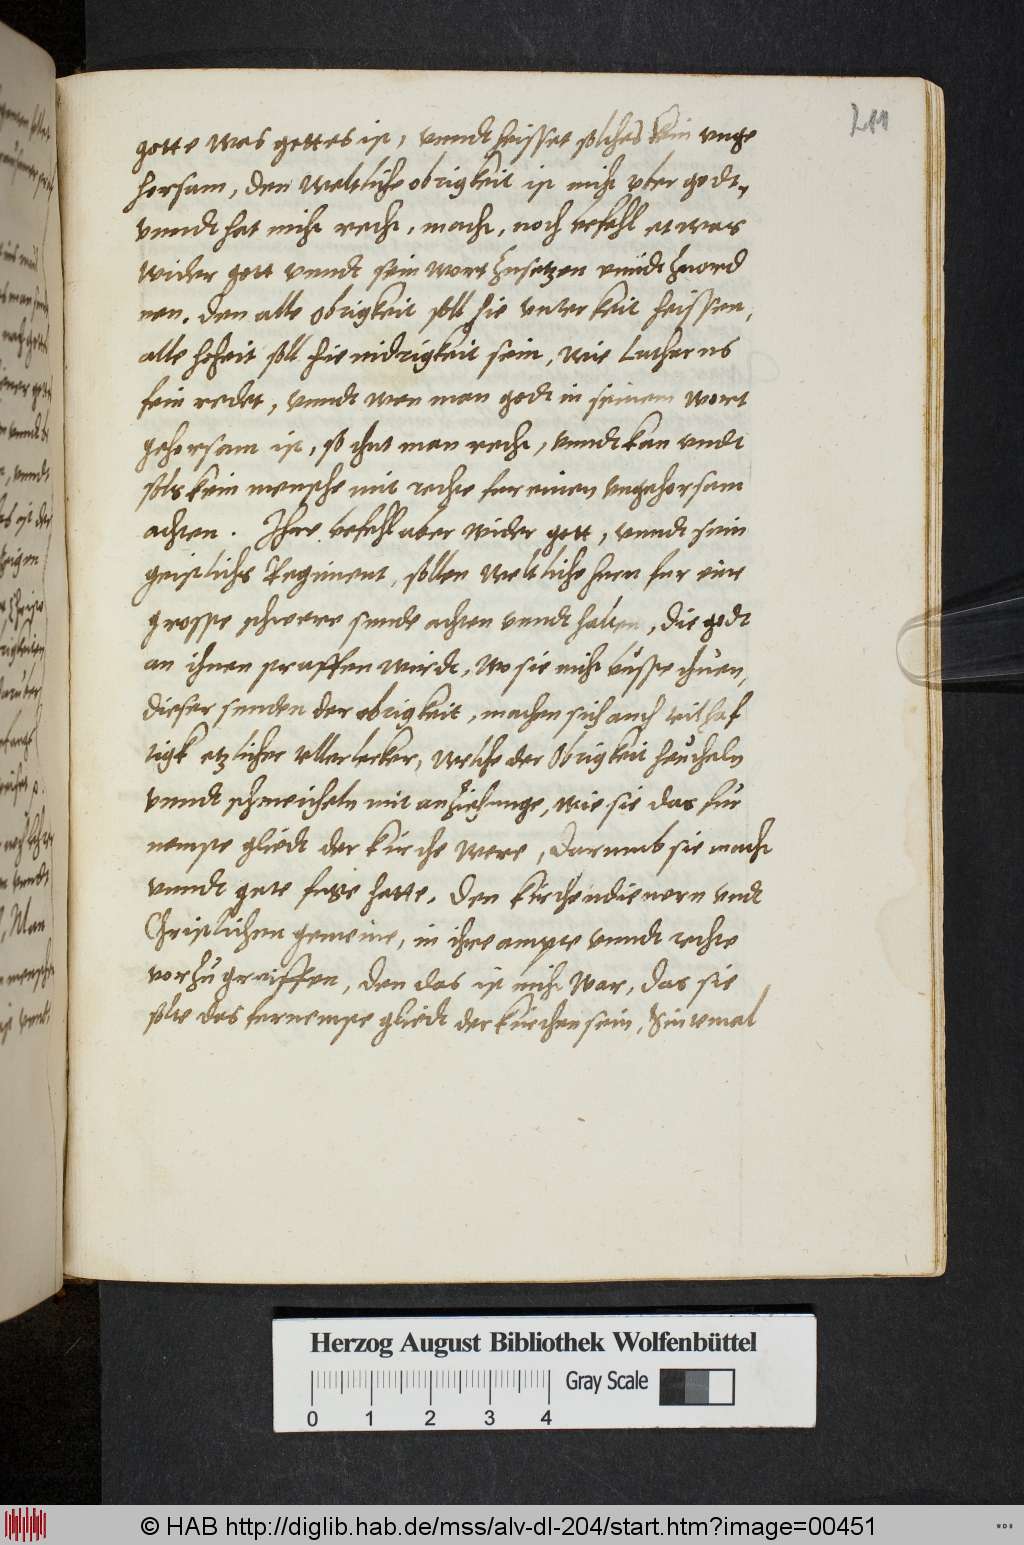 211
gotte was gottes ist, vnndt heisset solches kein vnge
horsam, den weltliche obrigkeit ist nicht vber godt,
vnndt hat nicht recht, macht, noch befehl etwas
wider gott vnndt sein wort zusetzen vnndt zuord
nen. den alle obrigkeit soll hie vnterkeit heissen,
alle hoheit soll hie nidrigkeit sein, wie Lutherus
fein redet, vnndt wen man godt in seinem wort
gehorsam ist, so thut man recht, vnndt kan vndt
sols kein mensche mit rechte fur einen vngehorsam
achten. Ihre befehl aber wider gott, vnndt sein
geistlichs Regiment, sollen weltliche hern fur eine
grosse schwere sunde achten vnndt halten, die godt
an ihnen straffen wirdt, wo sie nicht busse thuen,
dieser sunden der obrigkeit, machen sich auch teilhaf
tigk etzlicher tellerlecker, welche der Obrigkeit heucheln
vnndt schmeicheln mit anziehunge, wie sie das für
nemste gliedt der kirche were, darumb sie macht
vnndt gute fuge hatte, den kirchendienern vndt
Christlichen gemeine, in ihre ampte vnndt rechte
vorzugreiffen, den das ist nicht war, das sie
solte das furnemste gliedt der kirchen sein, Sintemal
Herzog August Bibliothek Wolfenbüttel
Gray Scale
0 1 2 3 4
© HAB http://diglib.hab.de/mss/alv-dl-204/start.htm?image=00451